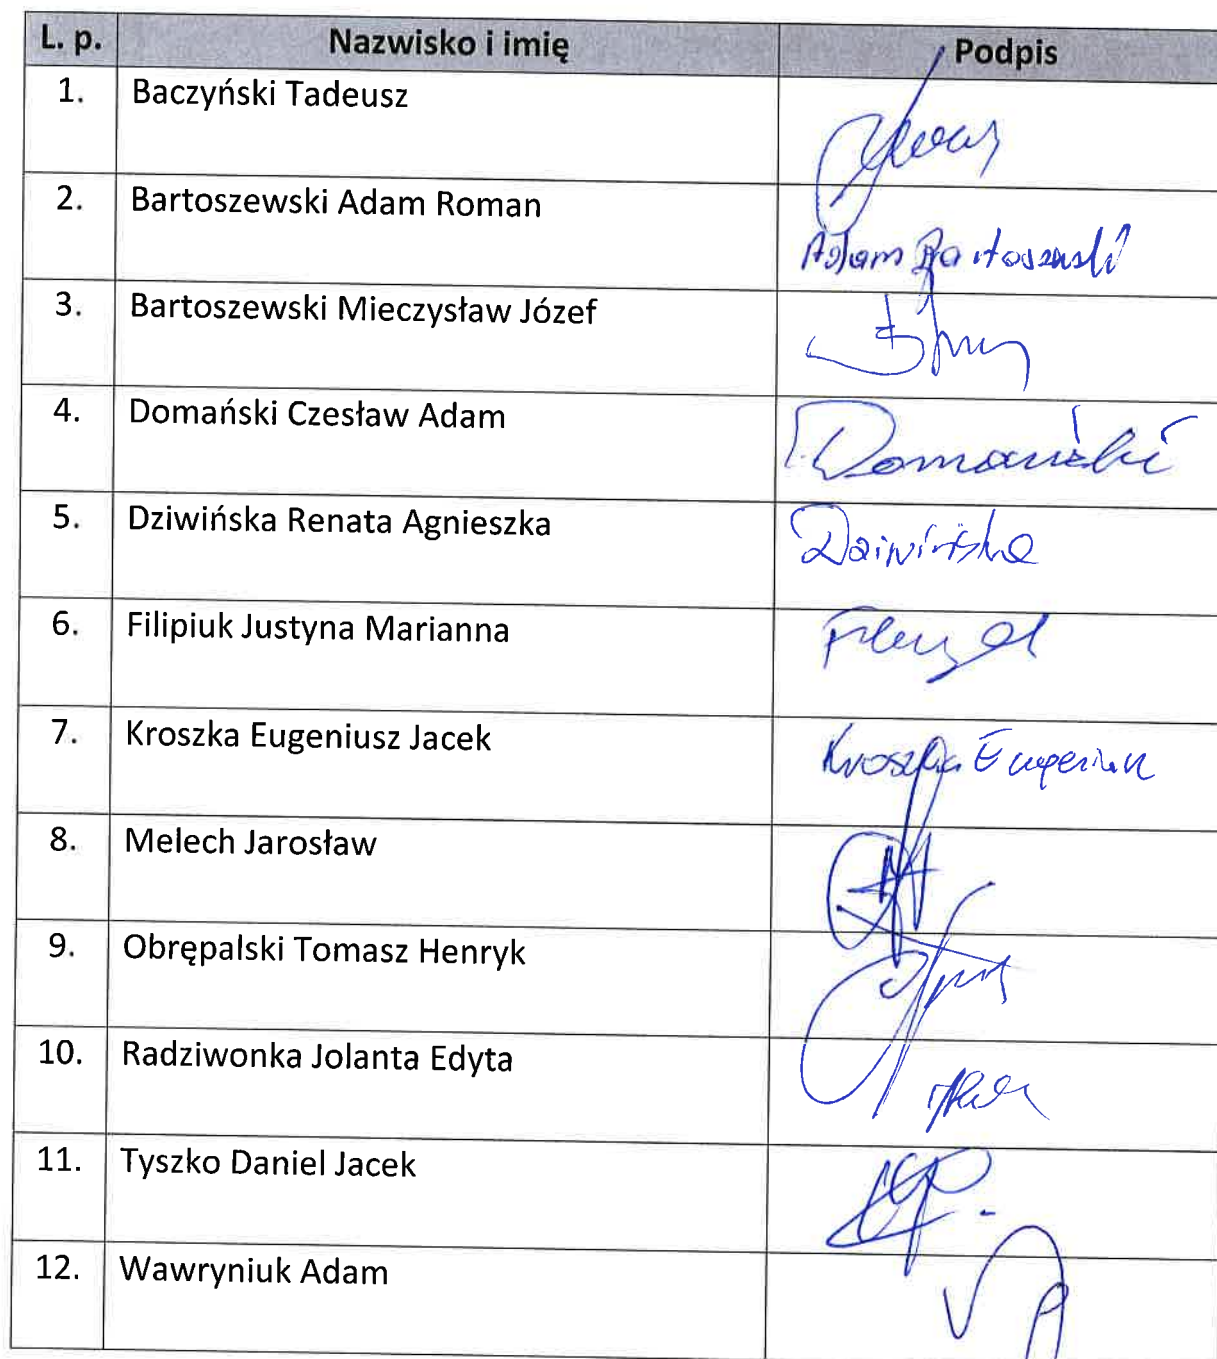 L. p. Nazwisko i imię Podpis
1. Baczyński Tadeusz
2. Bartoszewski Adam Roman Adam Bartoszewski
3. Bartoszewski Mieczysław Józef
4. Domański Czesław Adam Domański
5. Dziwińska Renata Agnieszka Dziwińska
6. Filipiuk Justyna Marianna
7. Kroszka Eugeniusz Jacek Kroszka Eugeniusz
8. Melech Jarosław
9. Obrępalski Tomasz Henryk
10. Radziwonka Jolanta Edyta
11. Tyszko Daniel Jacek
12. Wawryniuk Adam